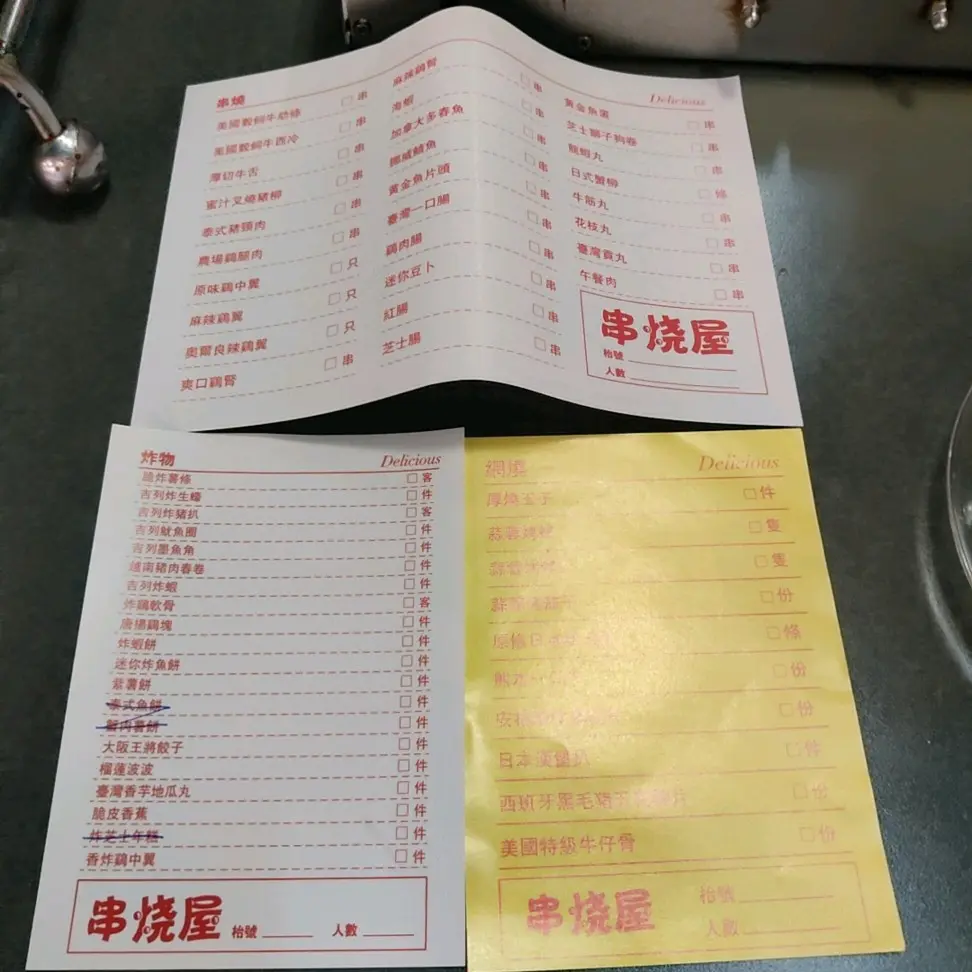 串燒
Delicious
美國穀飼牛肋條 □ 串
美國穀飼牛西冷 □ 串
厚切牛舌 □ 串
蜜汁叉燒豬柳 □ 串
泰式豬頸肉 □ 串
農場鷄腿肉 □ 串
原味鷄中翼 □ 只
麻辣鷄翼 □ 只
奧爾良辣鷄翼 □ 只
爽口鷄腎 □ 串
麻辣鷄腎 □ 串
海蝦 □ 串
加拿大多春魚 □ 串
挪威鯖魚 □ 串
黃金魚片頭 □ 串
臺灣一口腸 □ 串
鷄肉腸 □ 串
迷你豆卜 □ 串
紅腸 □ 串
芝士腸 □ 串
黃金魚蛋 □ 串
芝士獅子狗卷 □ 串
龍蝦丸 □ 串
日式蟹柳 □ 條
牛筋丸 □ 串
花枝丸 □ 串
臺灣貢丸 □ 串
午餐肉 □ 串
串烧屋
枱號
人數
炸物
Delicious
脆炸薯條 □ 客
吉列炸生蠔 □ 件
吉列炸猪扒 □ 客
吉列魷魚圈 □ 件
吉列墨魚角 □ 件
越南豬肉春卷 □ 件
吉列炸蝦 □ 件
炸鷄軟骨 □ 客
唐揚鷄塊 □ 件
炸蝦餅 □ 件
迷你炸魚餅 □ 件
紫薯餅 □ 件
泰式魚餅 □ 件
蟹肉薯餅 □ 件
大阪王將餃子 □ 件
榴蓮波波 □ 件
臺灣香芋地瓜丸 □ 件
脆皮香蕉 □ 件
炸芝士年糕 □ 件
香炸鷄中翼 □ 件
串烧屋 枱號 人數
網燒
Delicious
厚燒玉子 □ 件
蒜蓉烤 □ 隻
□ 隻
□ 份
原條日本 □ 條
□ 份
安格斯 □ 份
日本漢堡扒 □ 件
西班牙黑毛豬 □ 份
美國特級牛仔骨 □ 份
串烧屋
枱號
人數